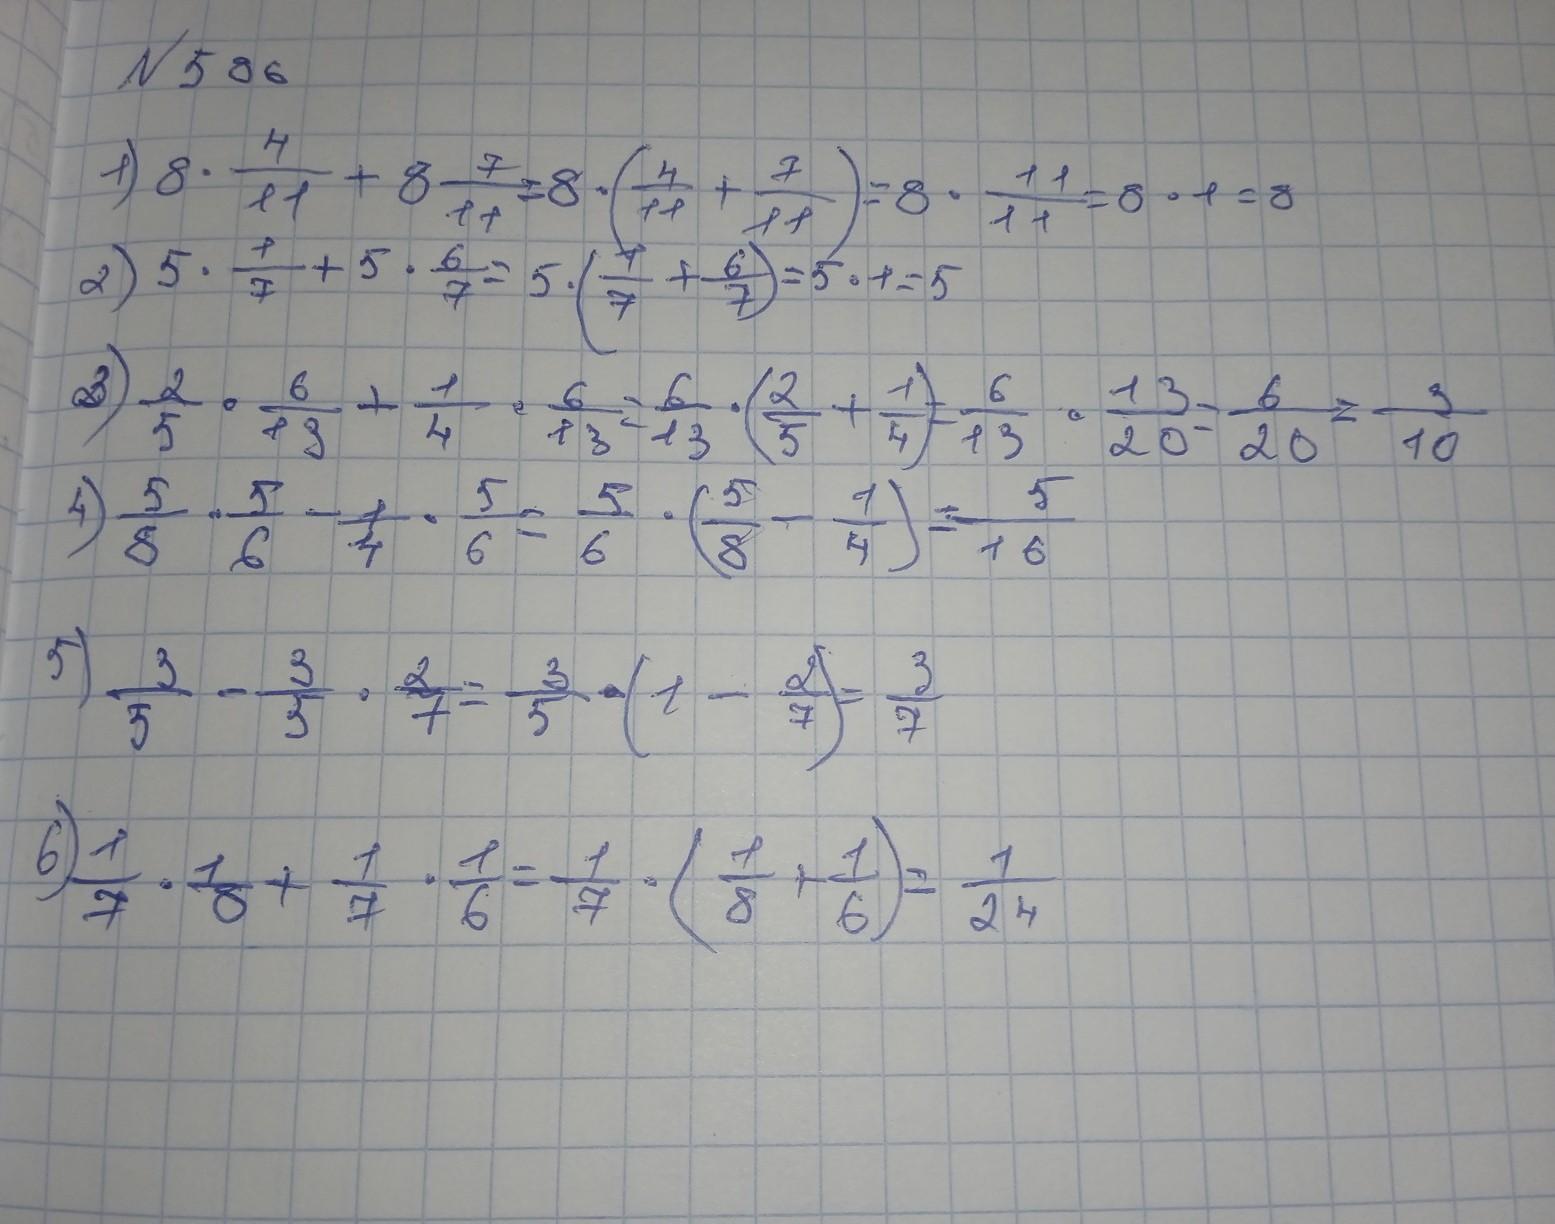 N 586
1) 8 · 4/11 + 8 7/11 = 8 · (4/11 + 7/11) = 8 · 11/11 = 8 · 1 = 8
2) 5 · 1/7 + 5 · 6/7 = 5 · (1/7 + 6/7) = 5 · 1 = 5
3) 2/5 · 6/13 + 1/4 · 6/13 = 6/13 · (2/5 + 1/4) = 6/13 · 13/20 = 6/20 = 3/10
4) 5/8 · 5/6 - 1/4 · 5/6 = 5/6 · (5/8 - 1/4) = 5/16
5) 3/5 - 3/5 · 2/7 = 3/5 · (1 - 2/7) = 3/7
6) 1/7 · 1/8 + 1/7 · 1/6 = 1/7 · (1/8 + 1/6) = 1/24